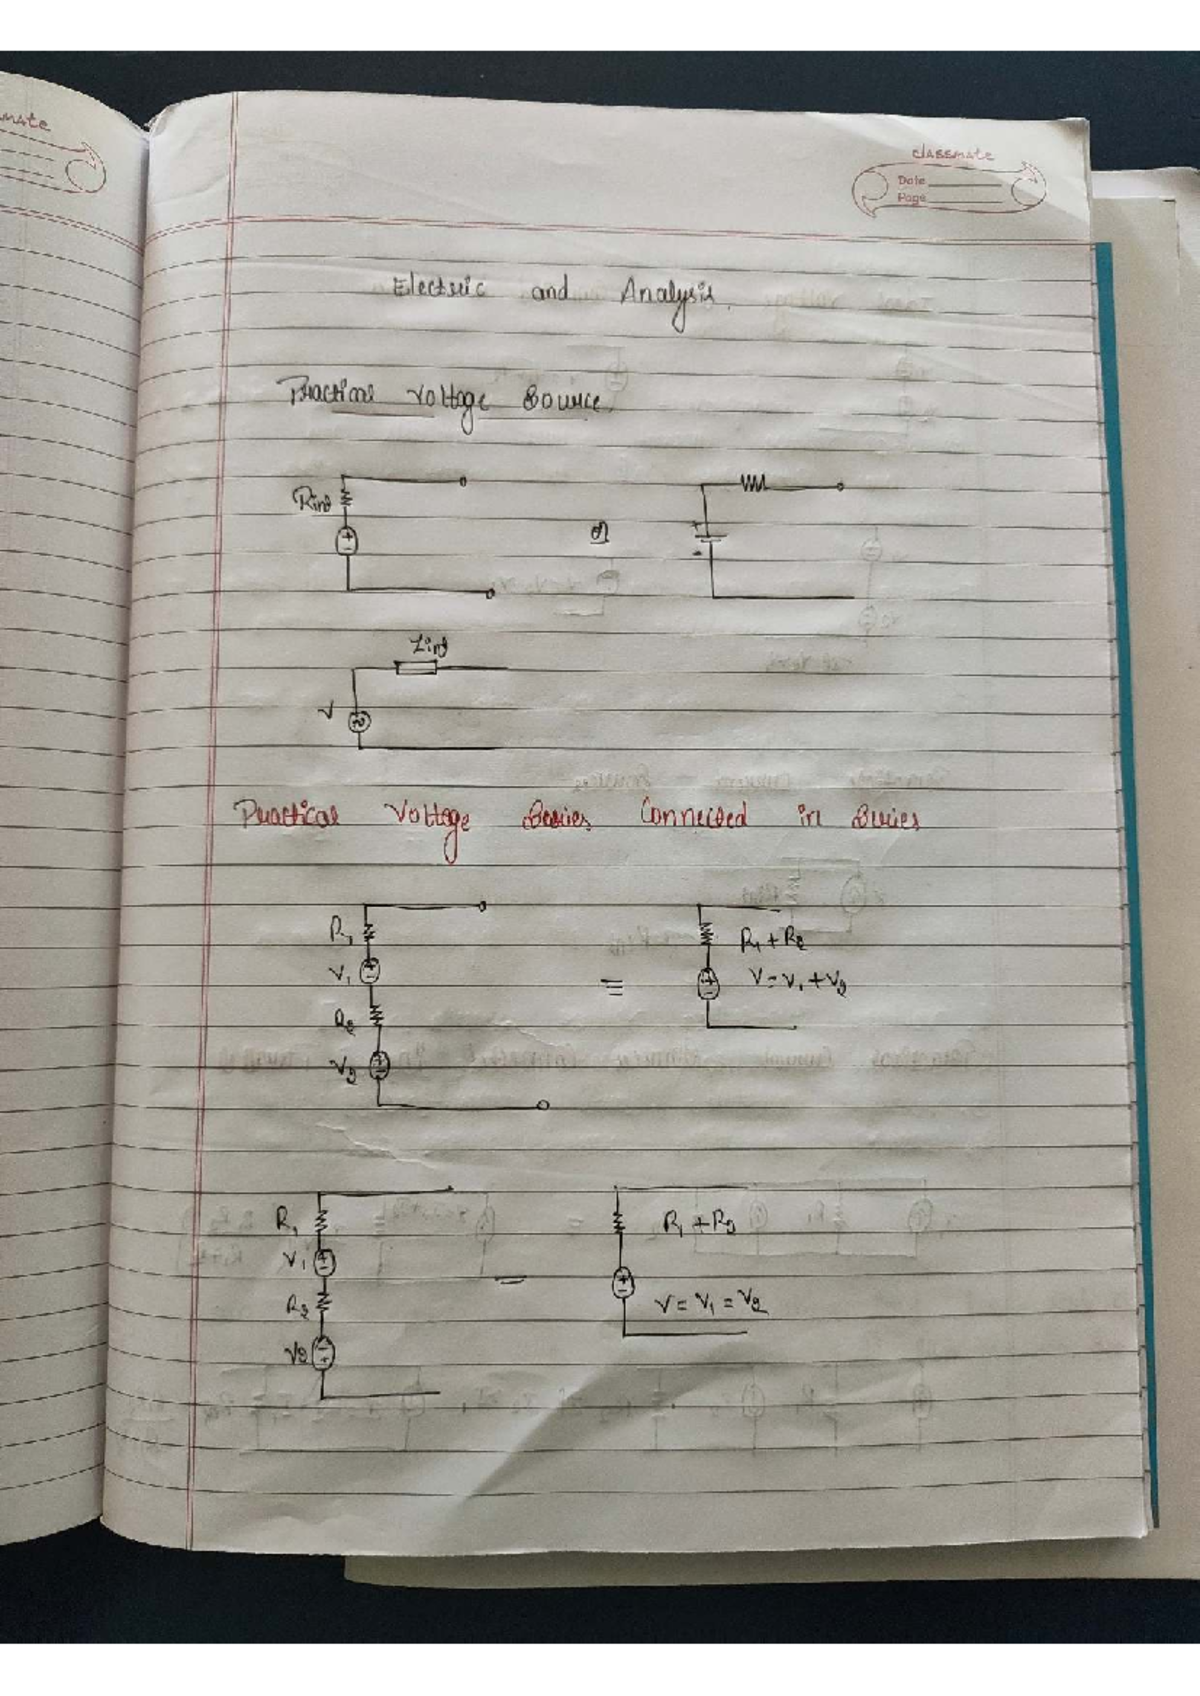 mate
classmate
Date
Page
Electric and Analysis.
Practical Voltage Source.
Rint
+
-
or
+
-
Zint
V
Practical Voltage Series Connected in Series
R1
V1
R2
V2
≡
R1 + R2
V = V1 + V2
R1
V1
R2
V2
=
R1 + R2
V = V1 = V2